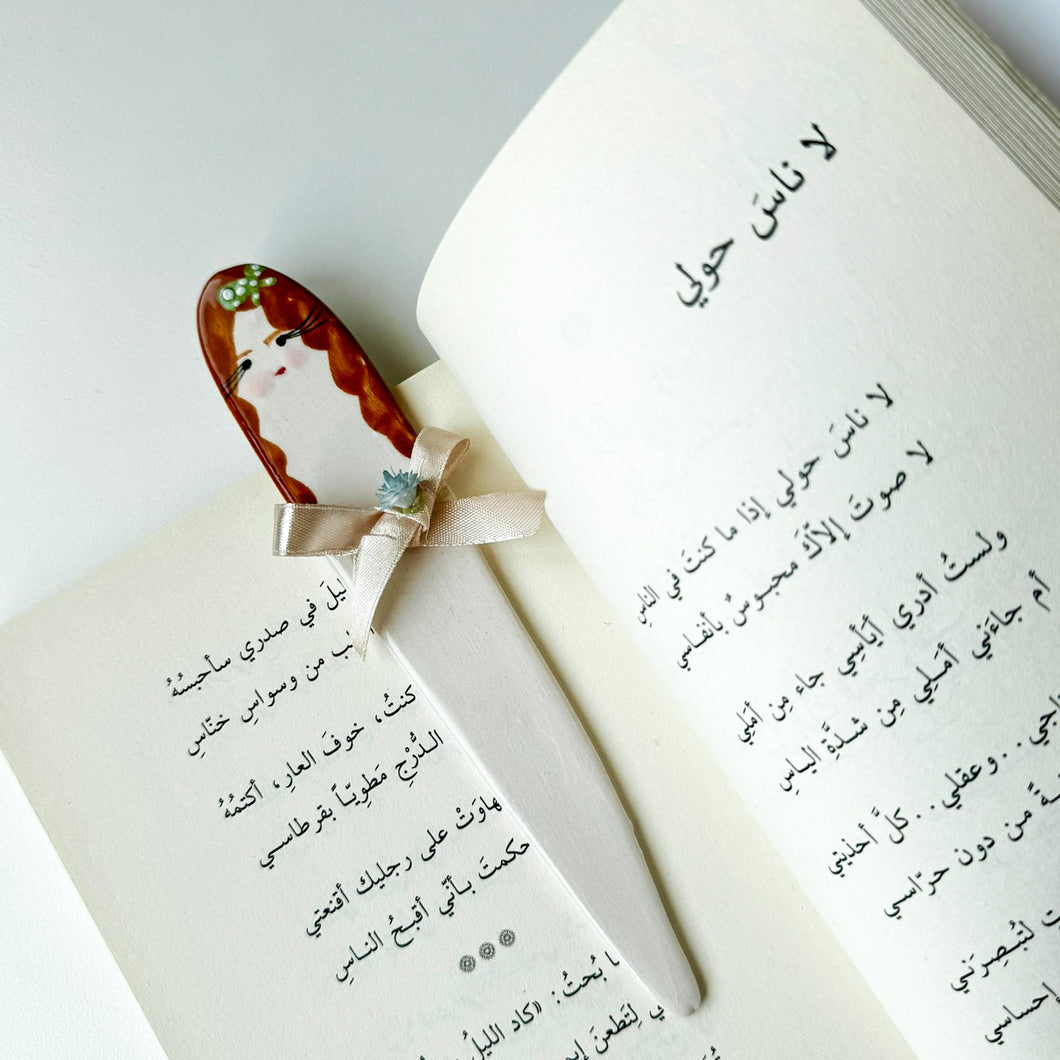 لا ناسَ حولي
لا ناسَ حولي إذا ما كنتَ في الناسِ
لا صوتَ إلاّكَ محبوسٌ بأنفاسي
ولستُ أدري أيَأسِي جاء مِن أمَلِي
أم جاءَني أمَلِي مِن شدَّةِ الياسِ
وعقلي.. كلَّ أحذيتي
من دون حرّاسي
لتُبصِرَني
إحساسي
في صدري سأحبسُهُ
من وسواسِ خنّاسِ
كنتُ، خوفَ العارِ، أكتمُهُ
الدُّرْجِ مَطوِيّاً بقرطاسي
على رجليك أقنعتي
حكمتَ بأنّي أقبحُ الناسِ
بُحتُ: «كاد الليلُ
لِتَطعنَ